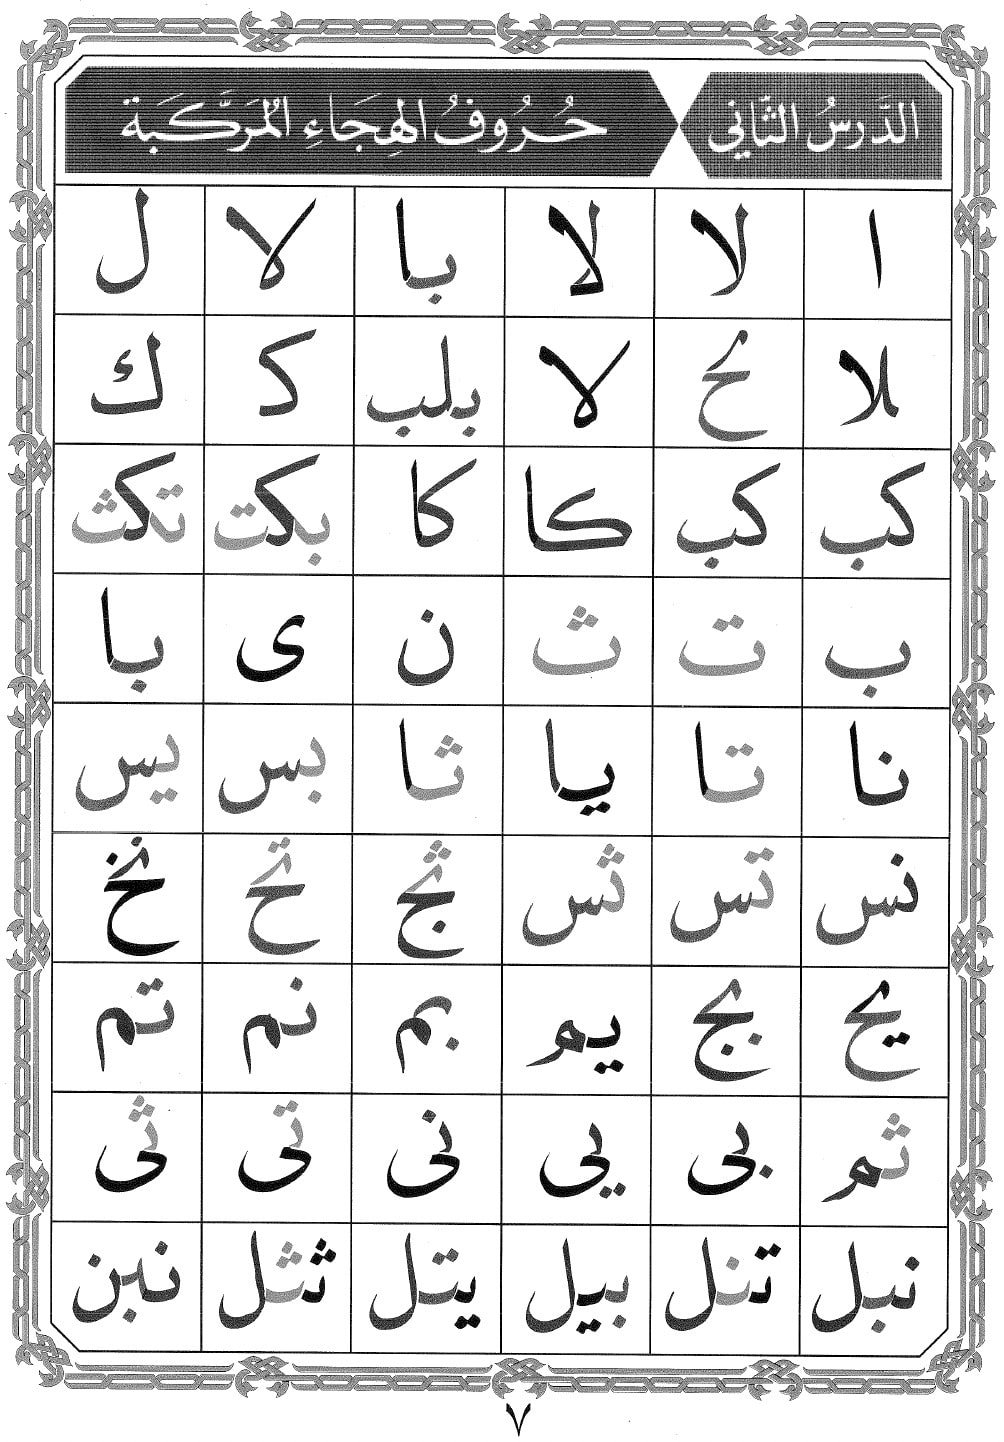 الدَّرسُ الثَّاني حُرُوفُ الهِجَاءِ المُرَكَّبَة
ا لا لا با لا ل
ملا بلب ك ك
كب كب كا كا بكت تكث
ب ت ث ن ى با
نا تا يا ثا بس يس
نس تس ثس ثج تح نخ
يح بج يم بم نم تم
ثم بى يى نى تى ثى
نبل تنل بيل يتل ثثل نبن
٧